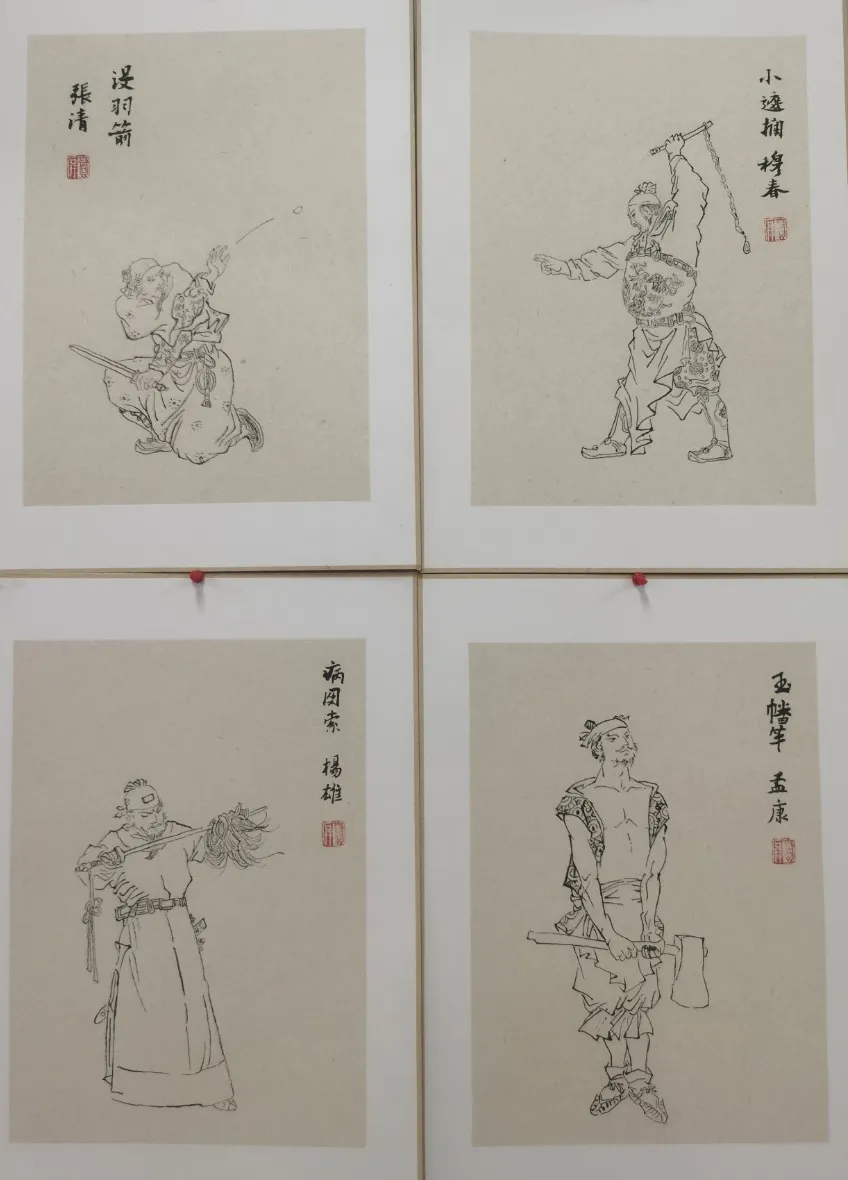 没羽箭
張清
小遮攔 穆春
病関索 楊雄
玉幡竿 孟康